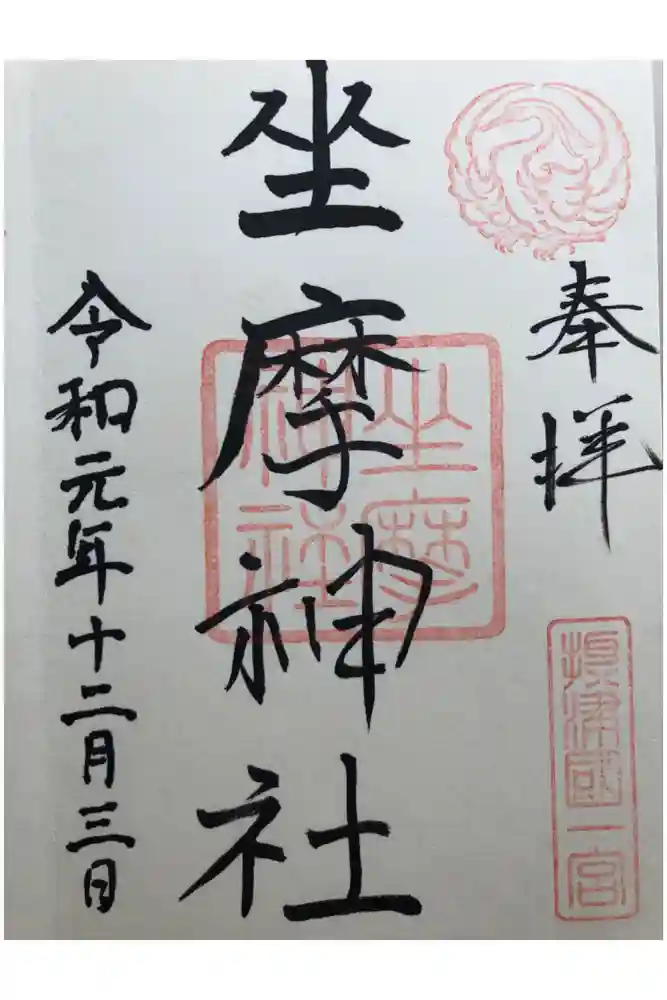 奉拝
摂津國一宮
坐摩神社
坐摩神社
令和元年十二月三日